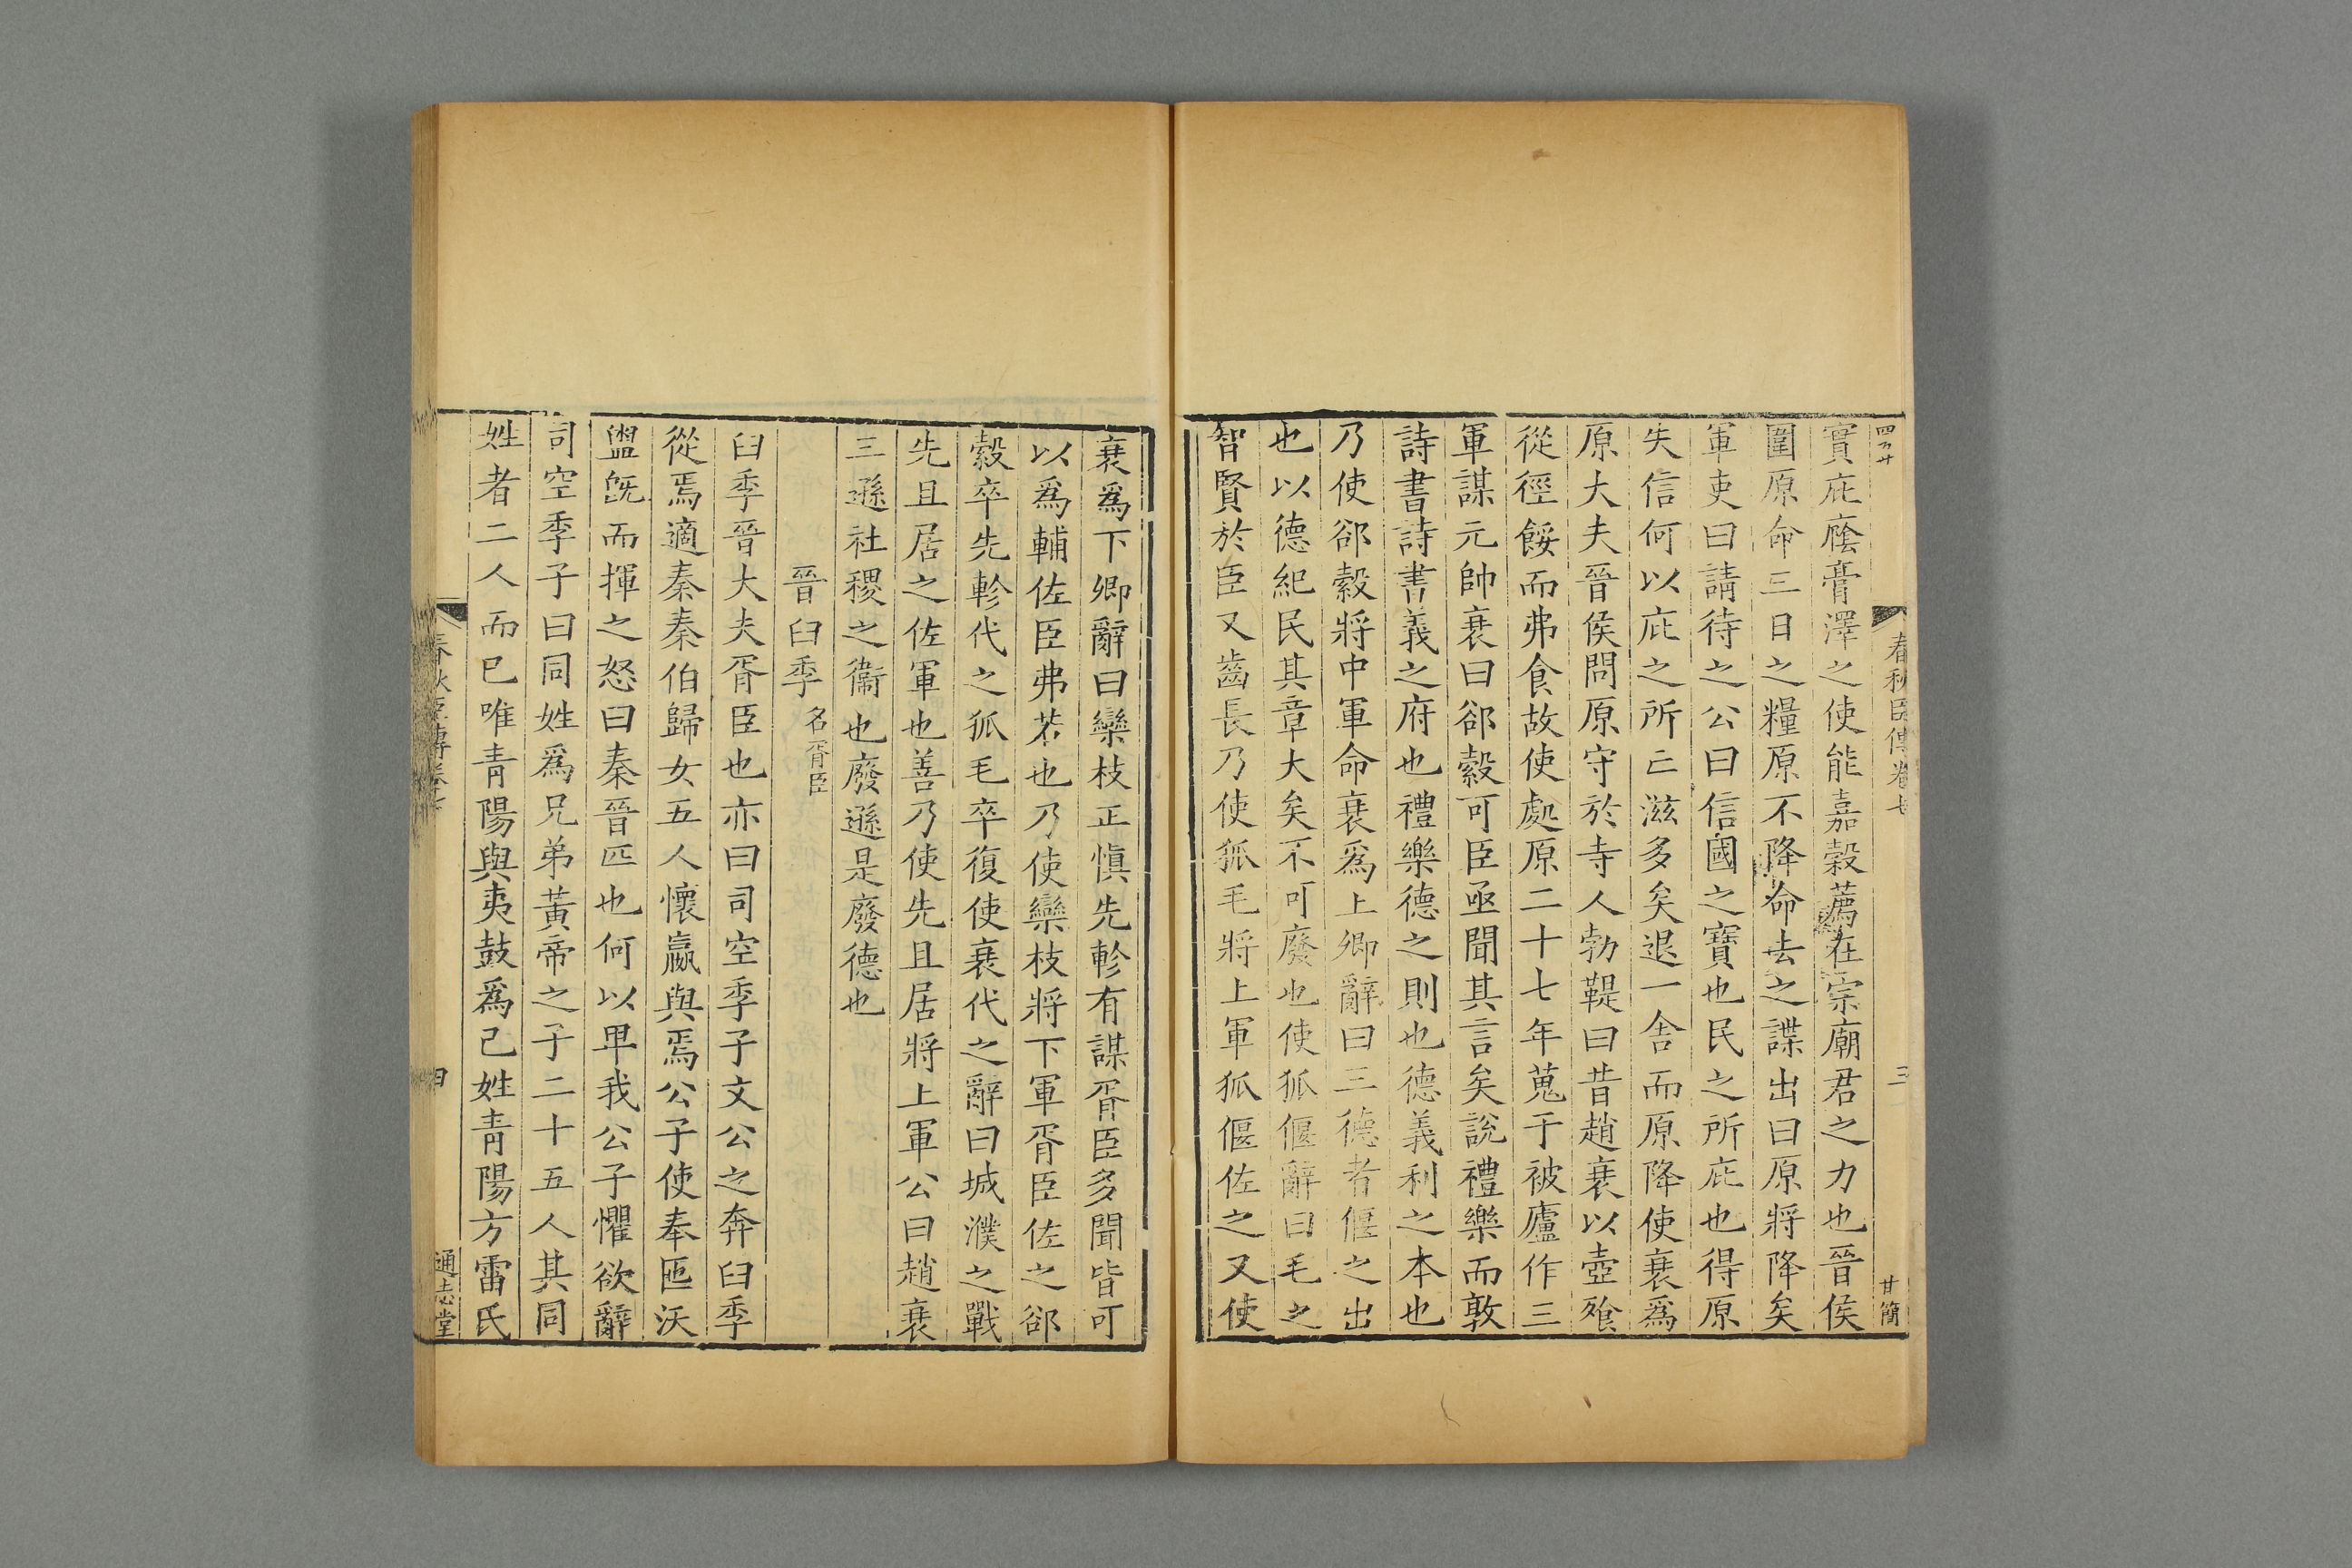 春秋臣傳卷七
三
甘簡
實庇廕膏澤之使能嘉穀薦在宗廟君之力也晉侯
圍原命三日之糧原不降命去之諜出曰原將降矣
軍吏曰請待之公曰信國之寶也民之所庇也得原
失信何以庇之所亡滋多矣退一舍而原降使衰爲
原大夫晉侯問原守於寺人勃鞮曰昔趙衰以壺飱
從徑餒而弗食故使處原二十七年蒐于被廬作三
軍謀元帥衰曰郤縠可臣亟聞其言矣說禮樂而敦
詩書詩書義之府也禮樂德之則也德義利之本也
乃使郤縠將中軍命衰爲上卿辭曰三德者偃之出
也以德紀民其章大矣不可廢也使狐偃辭曰毛之
智賢於臣又齒長乃使狐毛將上軍狐偃佐之又使
衰爲下卿辭曰欒枝正慎先軫有謀胥臣多聞皆可
以爲輔佐臣弗若也乃使欒枝將下軍胥臣佐之郤
縠卒先軫代之狐毛卒復使衰代之辭曰城濮之戰
先且居之佐軍也善乃使先且居將上軍公曰趙衰
三遜社稷之衞也廢遜是廢德也
晉臼季名胥臣
臼季晉大夫胥臣也亦曰司空季子文公之奔臼季
從焉適秦秦伯歸女五人懷嬴與焉公子使奉匜沃
盥旣而揮之怒曰秦晉匹也何以卑我公子懼欲辭
司空季子曰同姓爲兄弟黃帝之子二十五人其同
姓者二人而已唯青陽與夷鼓爲己姓青陽方雷氏
春秋臣傳卷七
四
通志堂